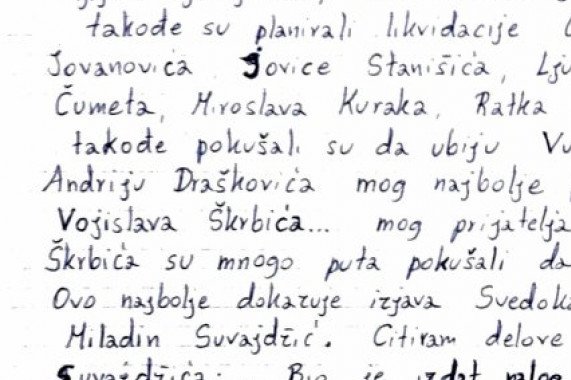 takođe su planirali likvidacije
Jovanovića Jovice Stanišića,
Čumeta, Miroslava Kuraka, Ratka
takođe pokušali su da ubiju
Andriju Draškovića mog najbolje
Vojislava Škrbića... mog prijatelja
Škrbića su mnogo puta pokušali da
Ovo najbolje dokazuje izjava Svedoka
Miladin Suvajdžić. Citiram delove
Suvajdžića: Bio je izdat nalog